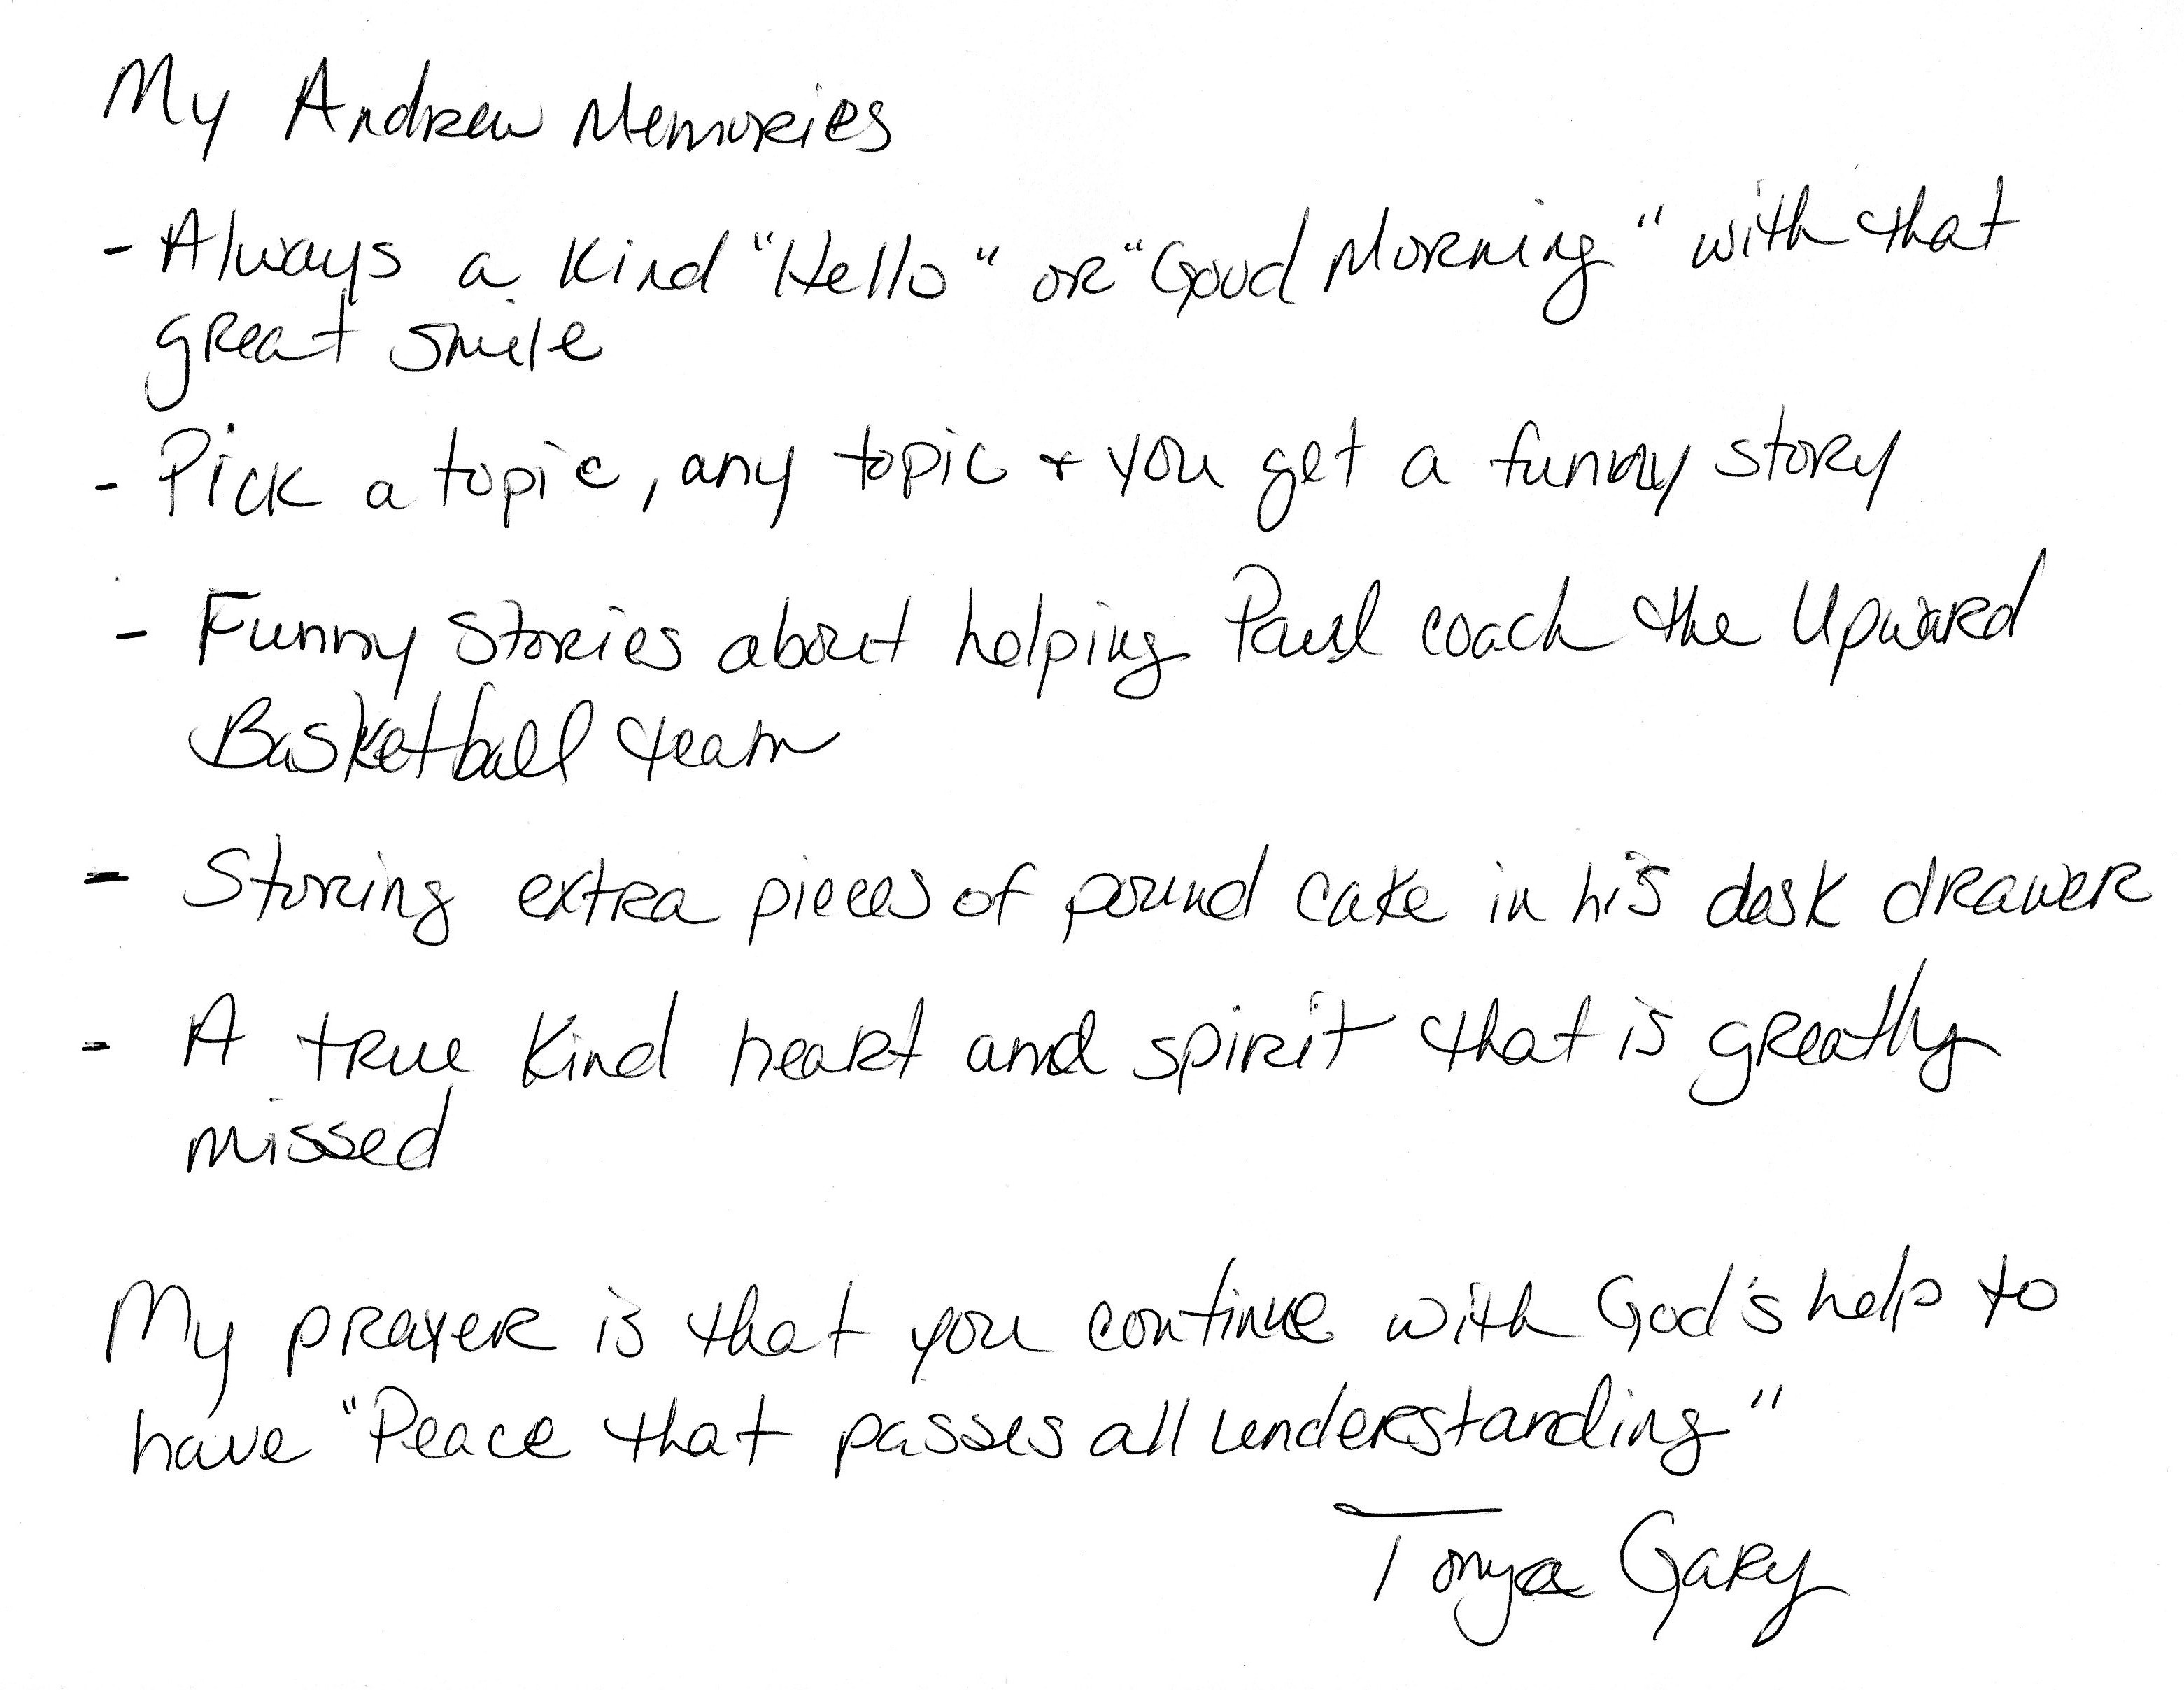 My Andrew Memories
- Always a kind "Hello" or "Good Morning" with that
great smile
- Pick a topic, any topic + you get a funny story
- Funny stories about helping Paul coach the Upward
Basketball team
- Storing extra pieces of pound cake in his desk drawer
- A true kind heart and spirit that is greatly
missed
My prayer is that you continue with God's help to
have "Peace that passes all understanding"
Tonya Gary